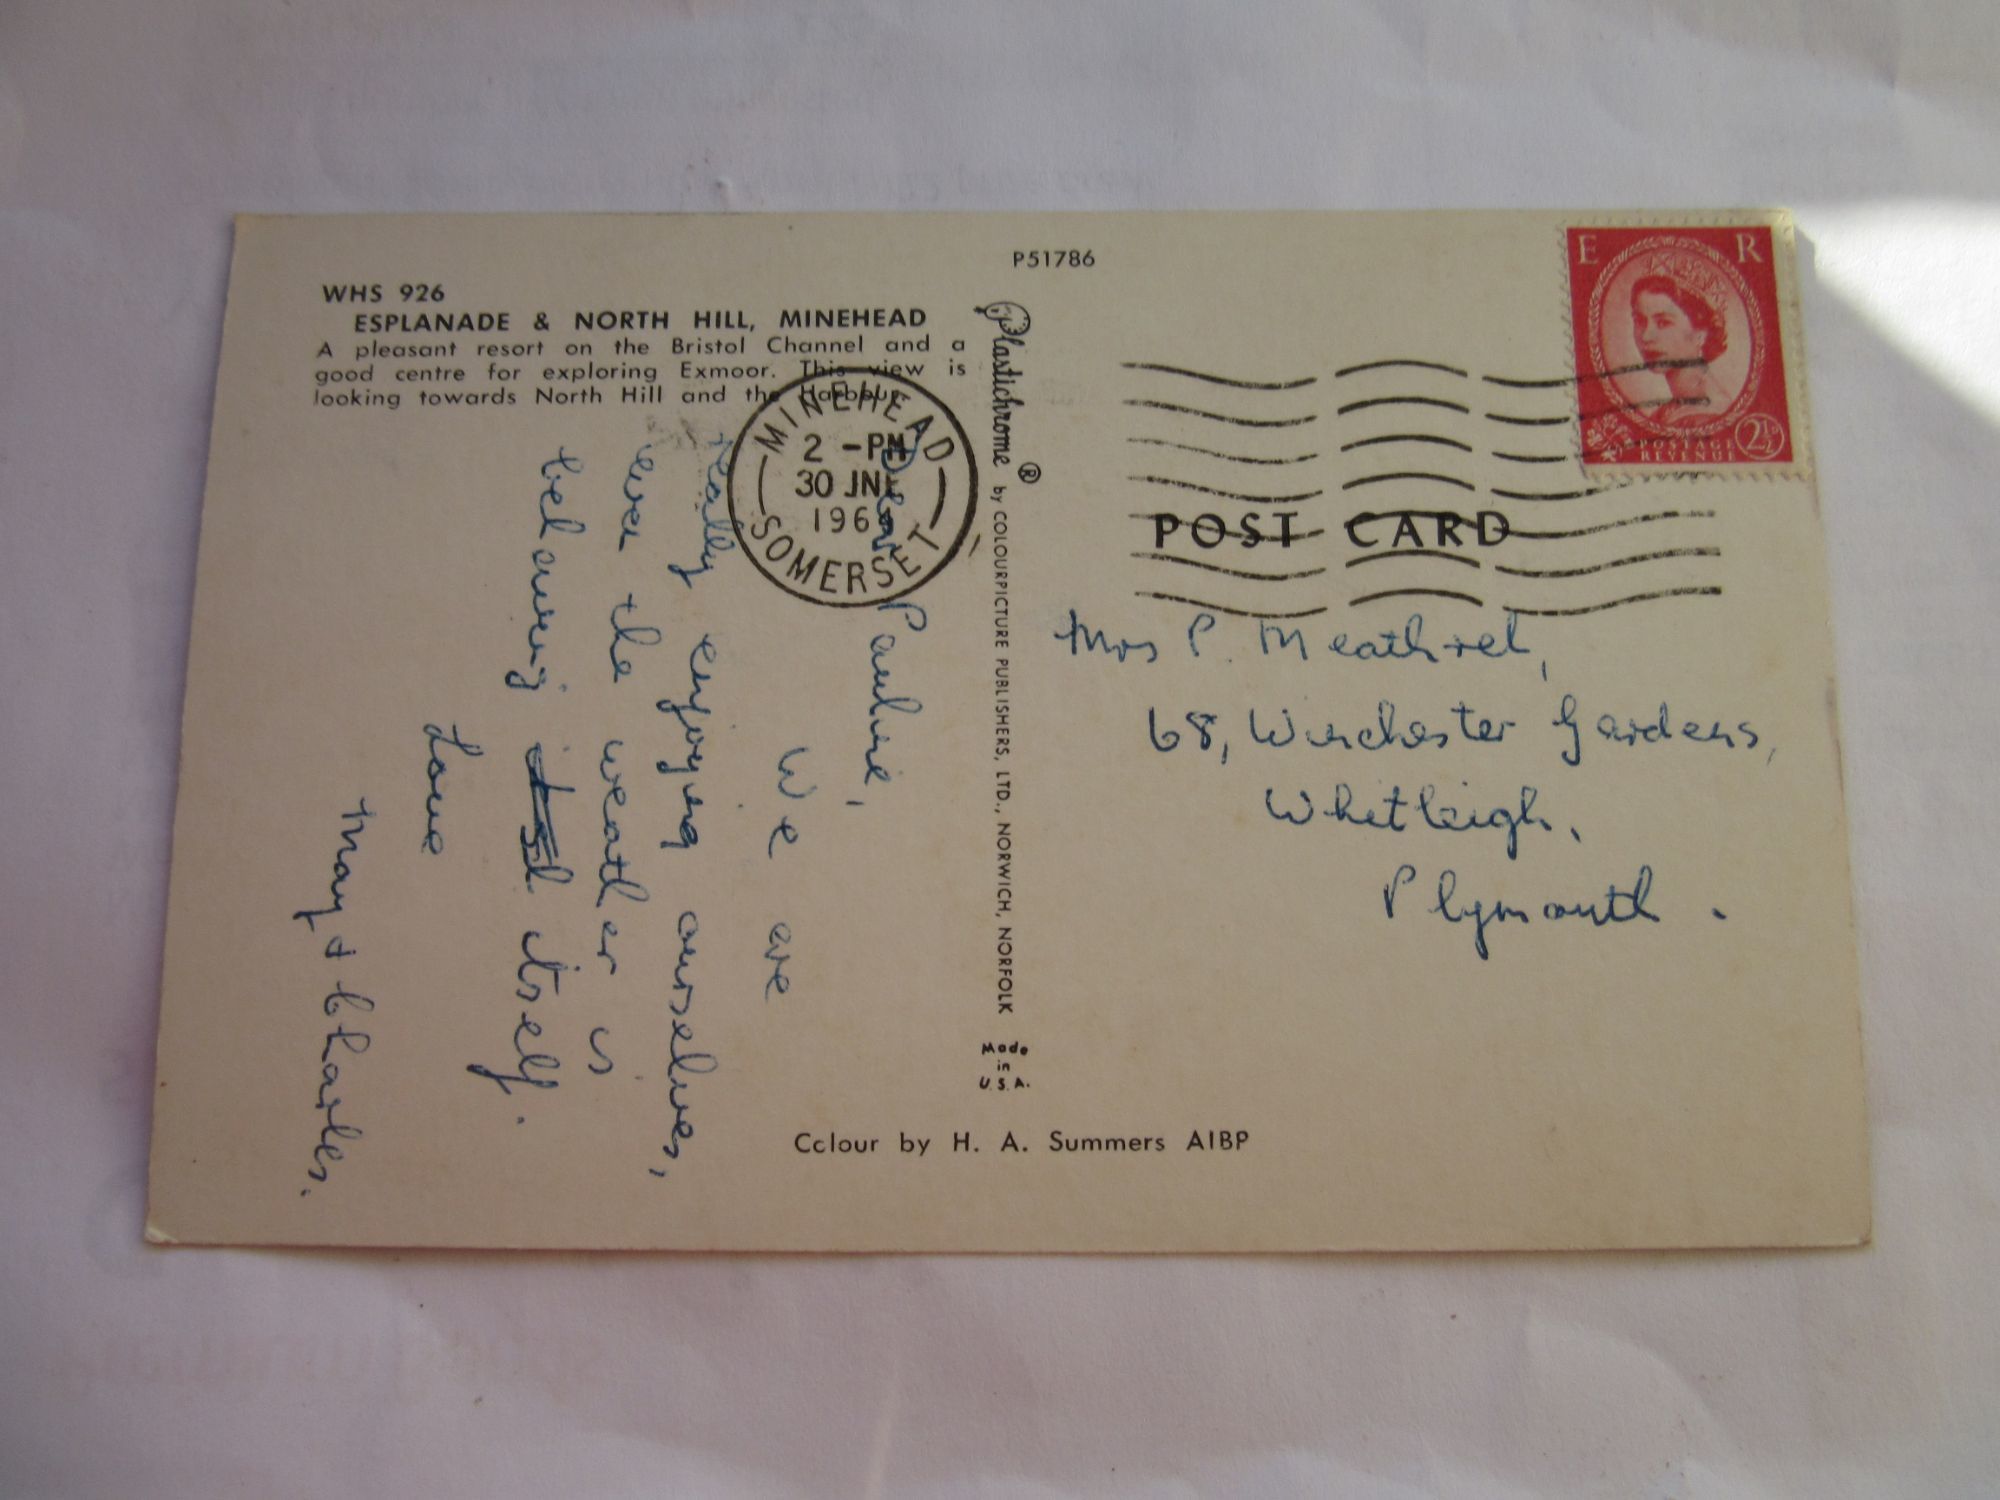 P51786
WHS 926
ESPLANADE & NORTH HILL, MINEHEAD
A pleasant resort on the Bristol Channel and a
good centre for exploring Exmoor. This view is
looking towards North Hill and the Harbour.
MINEHEAD
2 - PM
30 JNE
196
SOMERSET
Dear Pauline,
We are
really enjoying ourselves,
even the weather is
behaving itself.
Love
May & Charles.
Plastichrome ® by COLOURPICTURE PUBLISHERS, LTD., NORWICH, NORFOLK
Made
in
U.S.A.
E R
POSTAGE
REVENUE
2½D
POST CARD
Mrs P. Meathrel,
68, Winchester Gardens,
Whitleigh,
Plymouth.
Colour by H. A. Summers AIBP